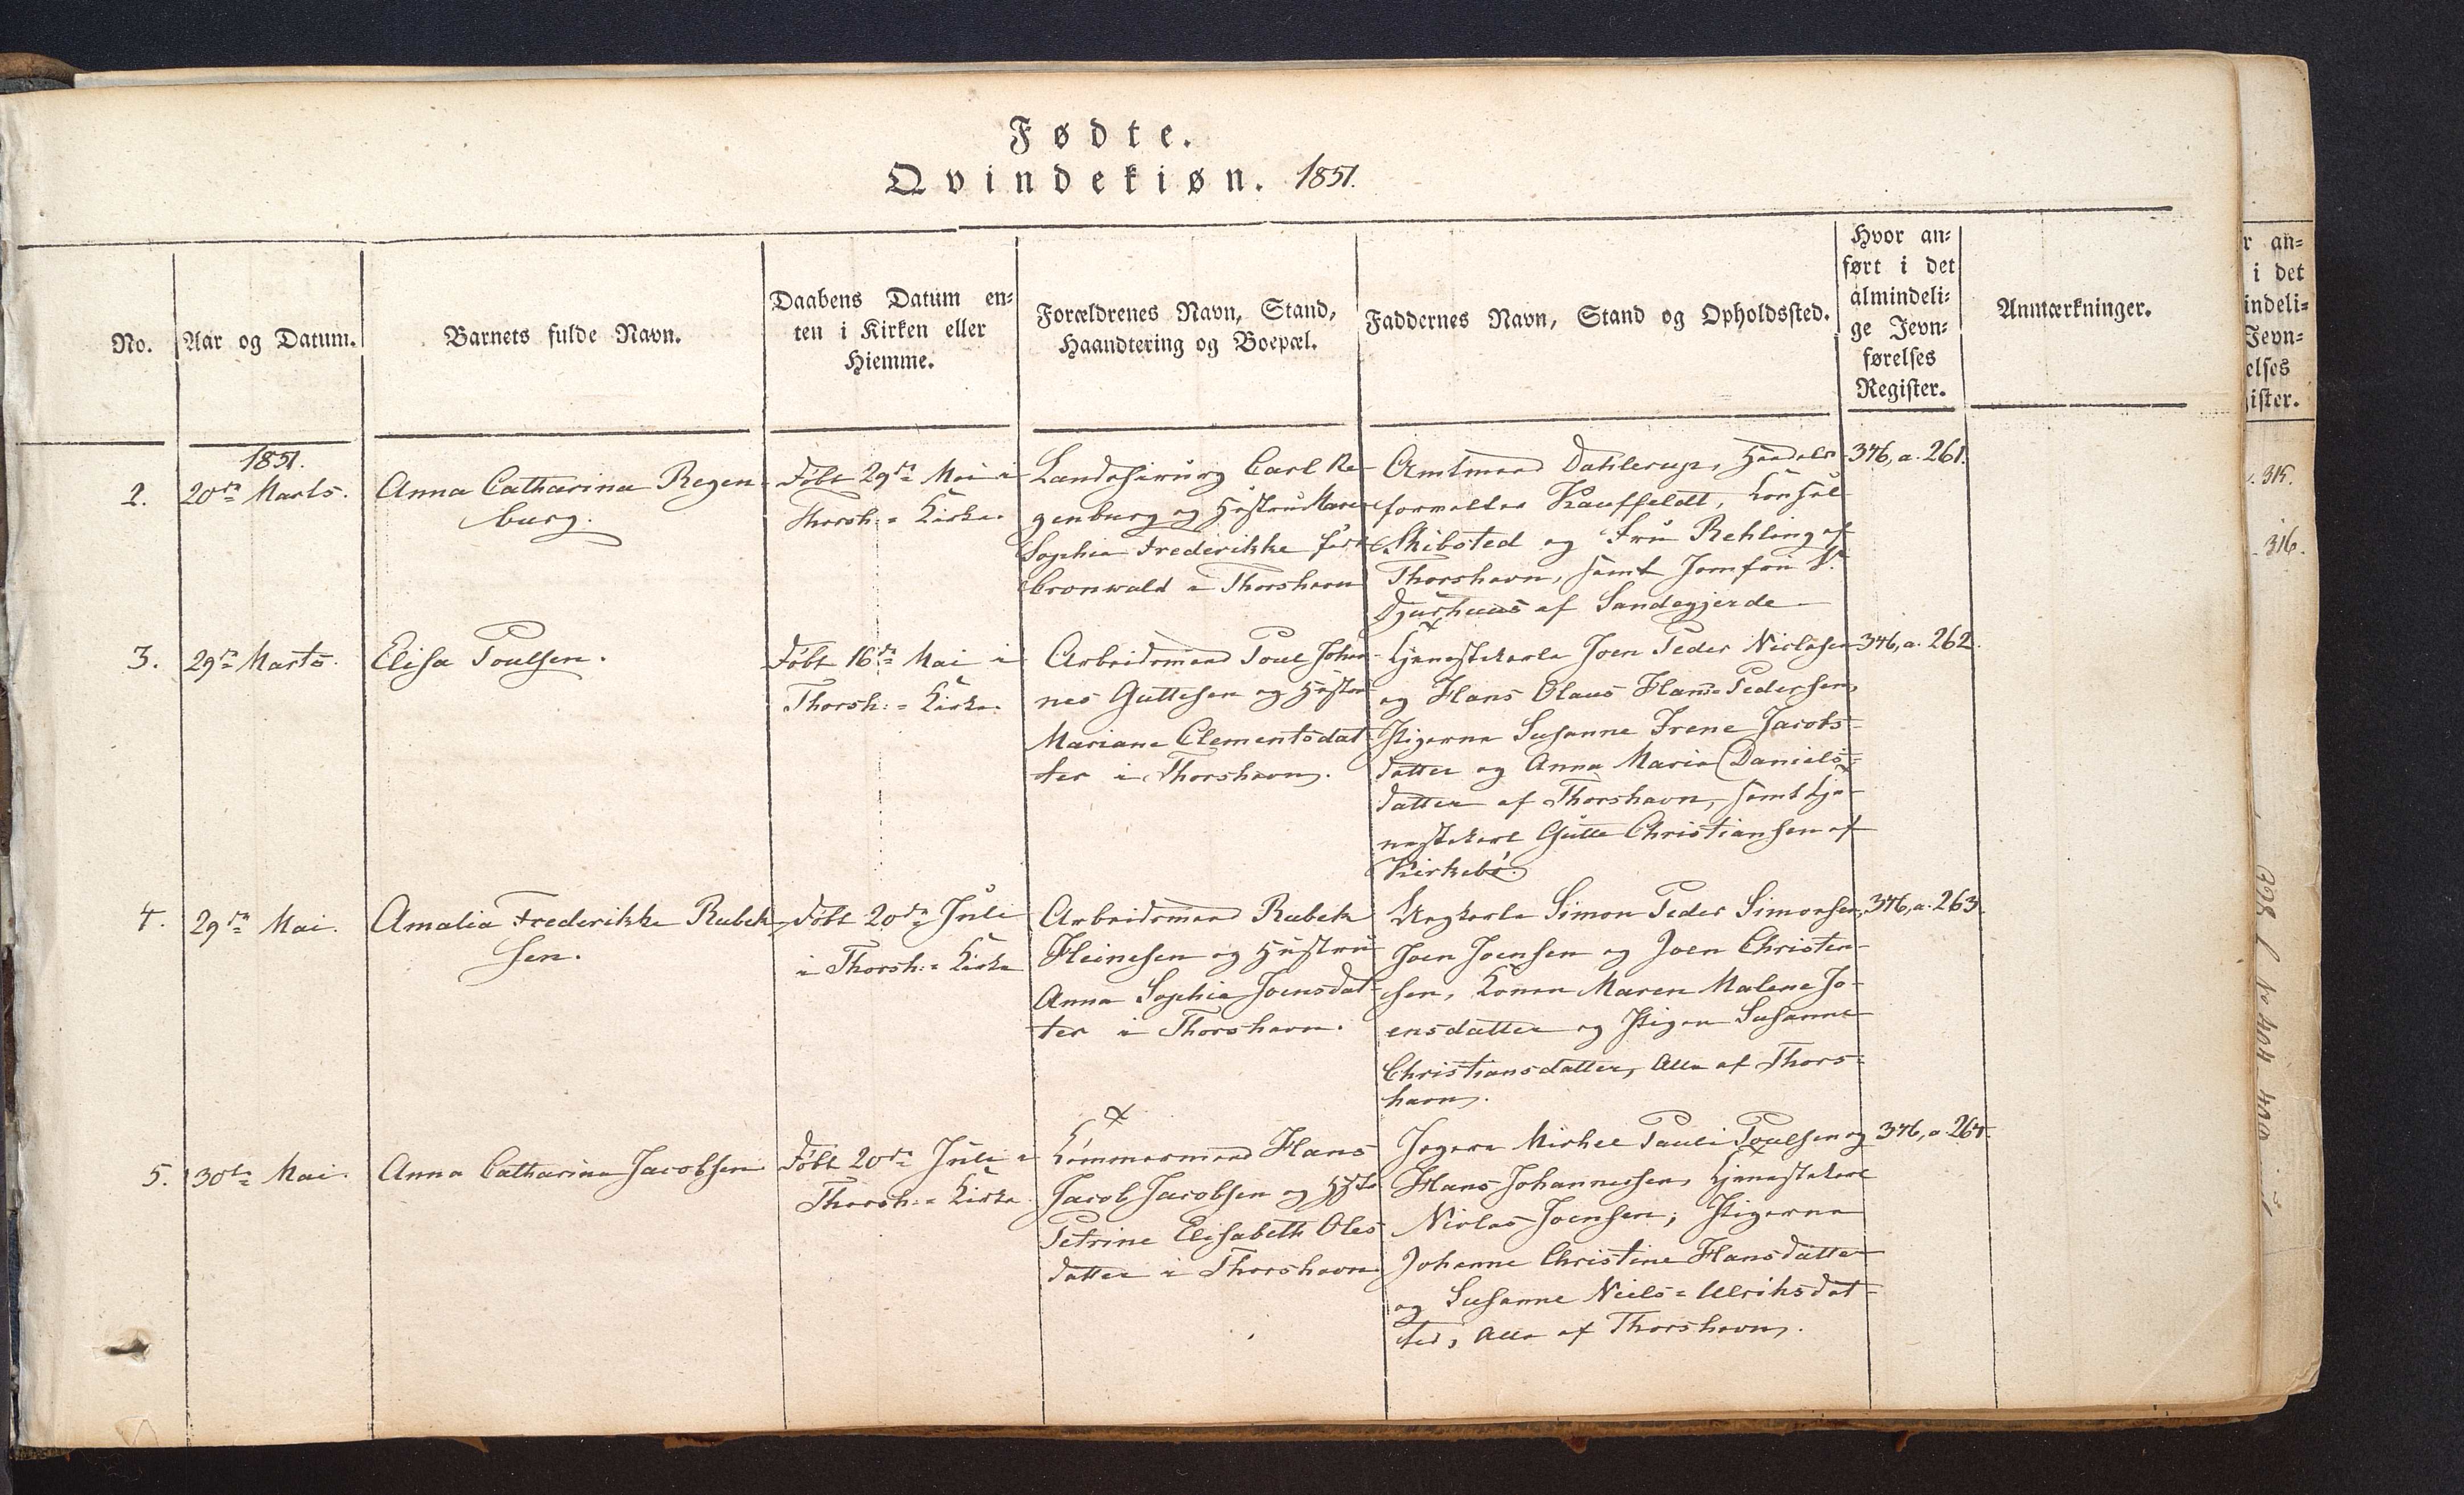 Fødte.
Qvindekiøn. 1851.
No.
Aar og Datum.
Barnets fulde Navn.
Daabens Datum en-
ten i Kirken eller
Hiemme.
Forældrenes Navn, Stand,
Haandtering og Boepæl.
Faddernes Navn, Stand og Opholdssted.
Hvor an-
ført i det
almindeli-
ge Jevn-
førelses
Register.
Anmærkninger.
1851.
2.
20de Marts.
Anna Catharina Regen-
burg.
Døbt 29de Mai i
Thorsh:= Kirke.
Landschirurg Carl Re-
genburg og Hustru Maren
Sophie Frederikke født
Cronwald i Thorshavn
Amtmand Dahlerup, Handels-
forvalter Kauffeldt, Konsul
Skibsted og Fru Rehling af
Thorshavn, samt Jomfru V.
Djurhuus af Sandegjerde
346, a. 261.
3.
29de Marts.
Elisa Poulsen.
Døbt 16de Mai i
Thorsh:= Kirke.
Arbeidsmand Poul Johan-
nes Guttesen og Hustru
Mariane Clementsdat-
ter i Thorshavn.
Tjenestekarle Joen Peder Niclasen
og Hans Olaus Hans Pedersen,
Pigerne Susanne Irene Jacobs-
datter og Anna Maria Daniels-
datter af Thorshavn, samt Tje-
nestekarl Gutte Christiansen af
Kirkebø.
346, a. 262.
4.
29de Mai.
Amalia Frederikke Rubek-
sen.
Døbt 20de Juli
i Thorsh:= Kirke
Arbeidsmand Rubek
Heinesen og Hustru
Anna Sophie Joensdat-
ter i Thorshavn.
Ungkarle Simon Peder Simonsen,
Joen Joensen og Joen Christen-
sen, Konen Maren Malene Jo-
ensdatter og Pigen Susanne
Christiansdatter, Alle af Thors-
havn.
346, a. 263.
5.
30te Mai.
Anna Catharina Jacobsen
Døbt 20de Juli i
Thorsh:= Kirke
Tømmermand Hans
Jacob Jacobsen og Hstr
Petrine Elisabeth Oles-
datter i Thorshavn
Jægere Michel Pauli Poulsen og
Hans Johannessen, Tjenestekarl
Niclas Joensen; Pigerne
Johanne Christine Hansdatter
og Susanne Niels=Ulriksdat-
ter, Alle af Thorshavn.
346, a. 264.
r an-
i det
indeli-
Jevn-
elses
ister.
315.
316.